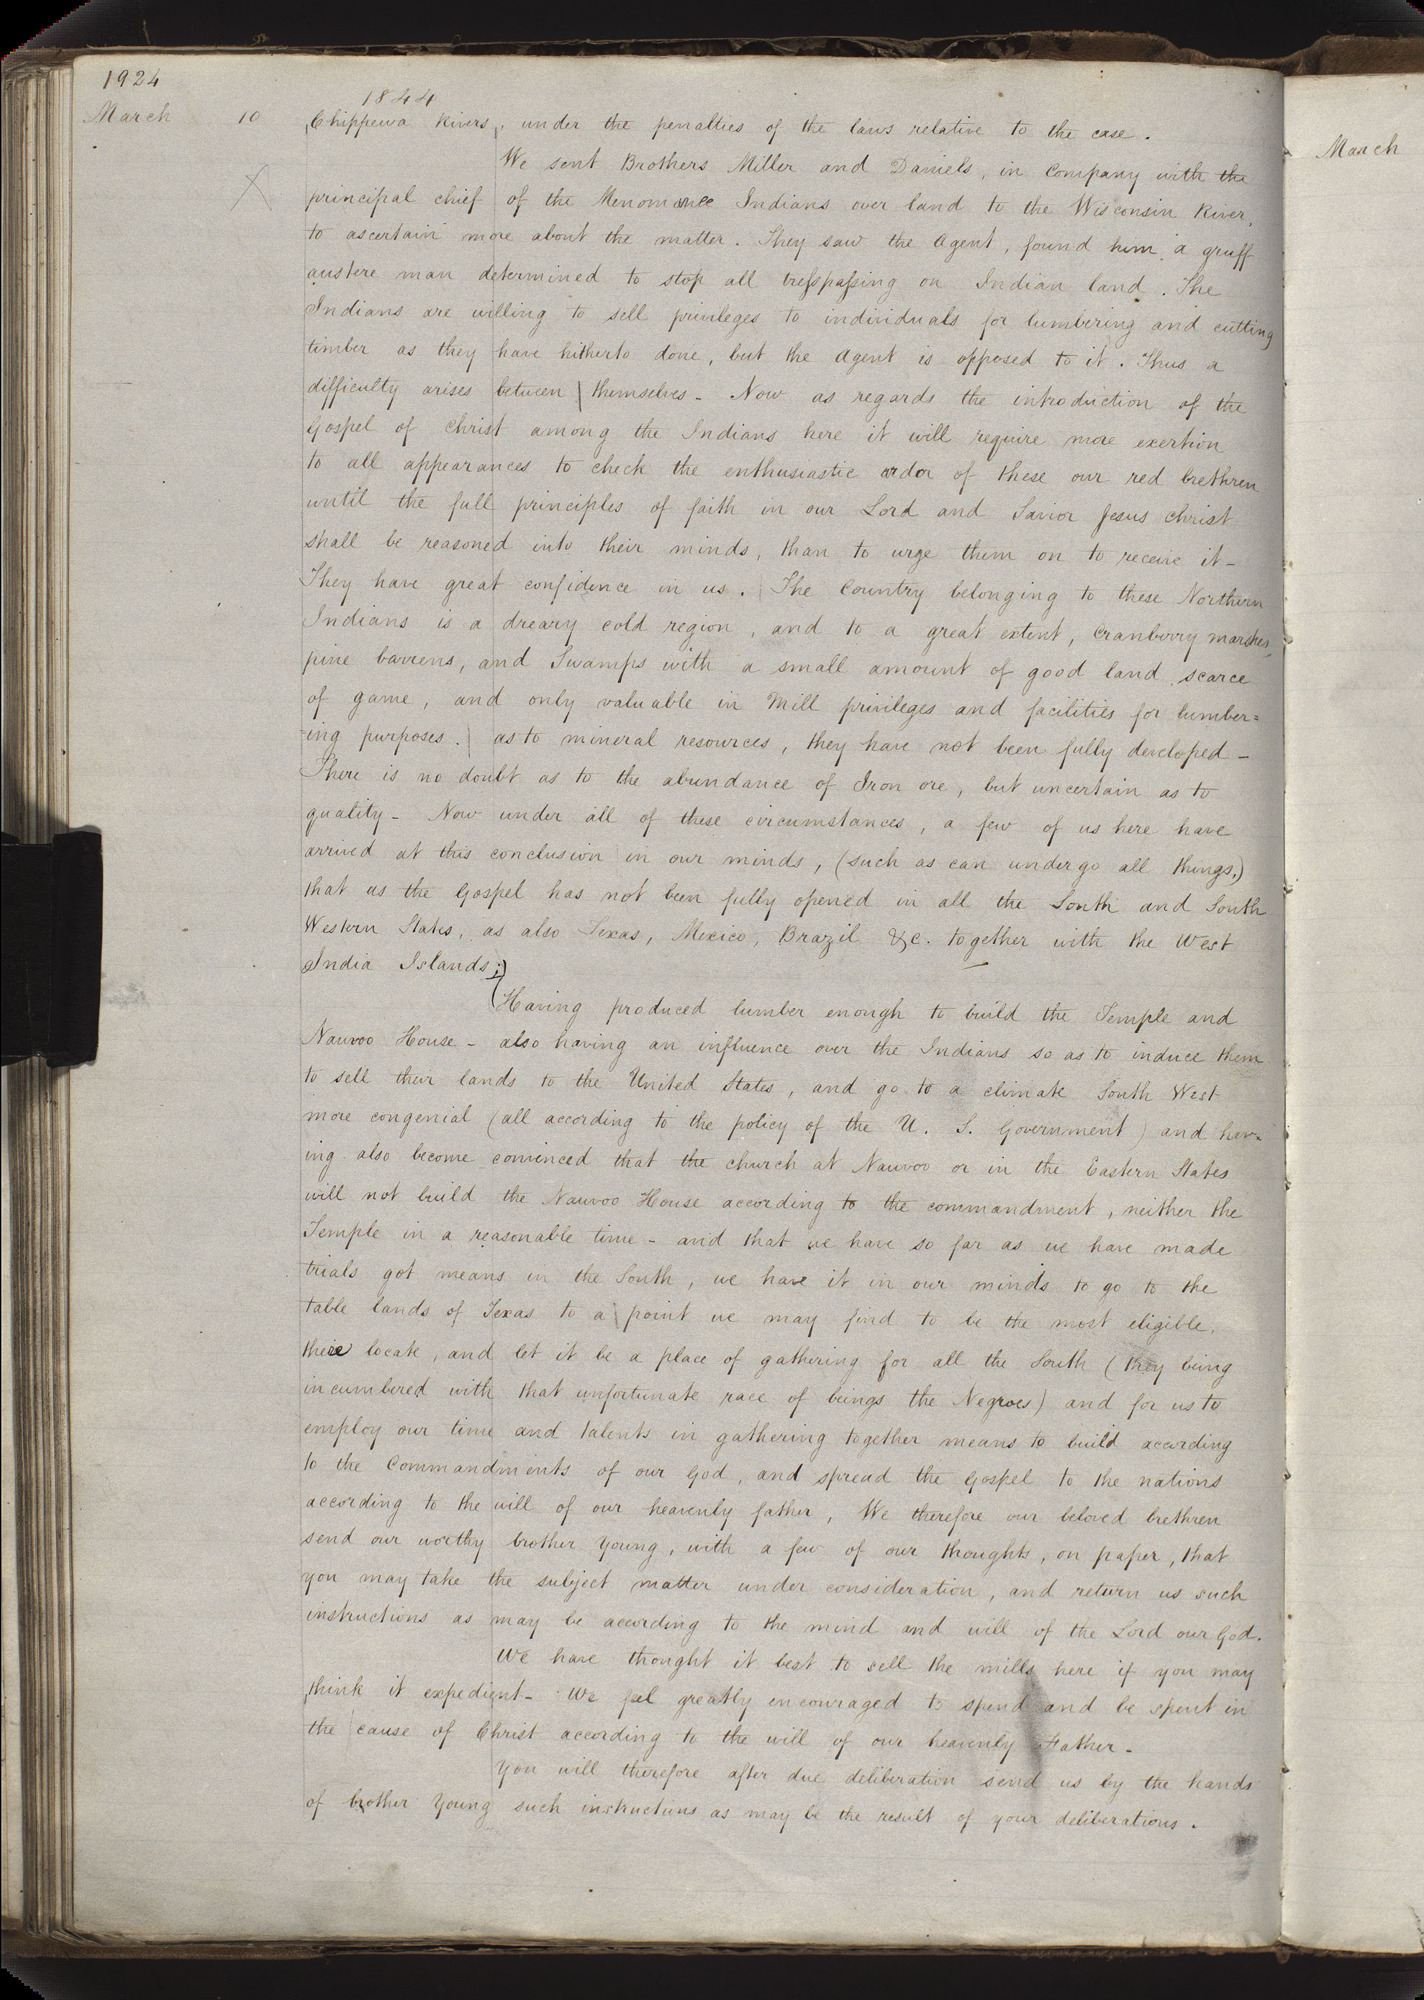 1924
1844
March 10 Chippewa Rivers, under the penalties of the laws relative to the case.
We sent Brothers Miller and Daniels, in company with the
principal chief of the Menominee Indians over land to the Wisconsin River,
to ascertain more about the matter. They saw the Agent, found him a gruff
austere man determined to stop all tresspassing on Indian land. The
Indians are willing to sell privileges to individuals for lumbering and cutting
timber as they have hitherto done, but the Agent is opposed to it. Thus a
difficulty arises between themselves - Now as regards the introduction of the
gospel of Christ among the Indians here it will require more exertion
to all appearances to check the enthusiastic ardor of these our red brethren
until the full principles of faith in our Lord and Savior Jesus Christ
shall be reasoned into their minds, than to urge them on to receive it -
They have great confidence in us. The Country belonging to these Northern
Indians is a dreary cold region, and to a great extent, cranberry marshes,
pine barrens, and Swamps with a small amount of good land scarce
of game, and only valuable in Mill privileges and facilities for lumber=
ing purposes. as to mineral resources, they have not been fully developed -
There is no doubt as to the abundance of Iron ore, but uncertain as to
quality - Now under all of these circumstances, a few of us here have
arrived at this conclusion in our minds, (such as can undergo all things,)
that as the Gospel has not been fully opened in all the South and South
Western States, as also Texas, Mexico, Brazil &c. together with the West
India Islands;)
(Having produced lumber enough to build the Temple and
Nauvoo House - also having an influence over the Indians so as to induce them
to sell their lands to the United States, and go to a climate South West
more congenial (all according to the policy of the U. S. Government) and hav-
ing also become convinced that the church at Nauvoo or in the Eastern States
will not build the Nauvoo House according to the commandment, neither the
Temple in a reasonable time - and that we have so far as we have made
trials got means in the South, we have it in our minds to go to the
table lands of Texas to a point we may find to be the most eligible,
there locate, and let it be a place of gathering for all the South (they being
incumbered with that unfortunate race of beings the Negroes) and for us to
employ our time and talents in gathering together means to build according
to the commandments of our God, and spread the Gospel to the nations
according to the will of our heavenly father, We therefore our beloved brethren
send our worthy brother Young, with a few of our thoughts, on paper, that
you may take the subject matter under consideration, and return us such
instructions as may be according to the mind and will of the Lord our God.
We have thought it best to sell the mills here if you may
think it expedient - We feel greatly encouraged to spend and be spent in
the cause of Christ according to the will of our heavenly Father -
You will therefore after due deliberation send us by the hands
of brother Young such instructions as may be the result of your deliberations.
March